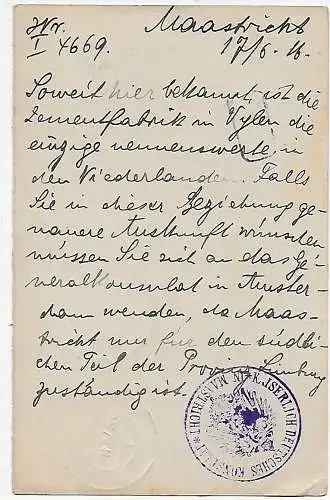 Nr.
I 4669.
Maastricht
17/6. 16.
Soweit hier bekannt, ist die
Zementfabrik in Vylen die
einzige nennenswerte, in
den Niederlanden. Falls
Sie in dieser Beziehung ge-
nauere Auskunft wünschen
müssen Sie sich an das Ge-
neralkonsulat in Amster-
dam wenden, da Maas-
tricht nur für den südli-
chen Teil der Provinz Limburg
zuständig ist.
KAISERLICH DEUTSCHES KONSULAT * IN MAASTRICHT *